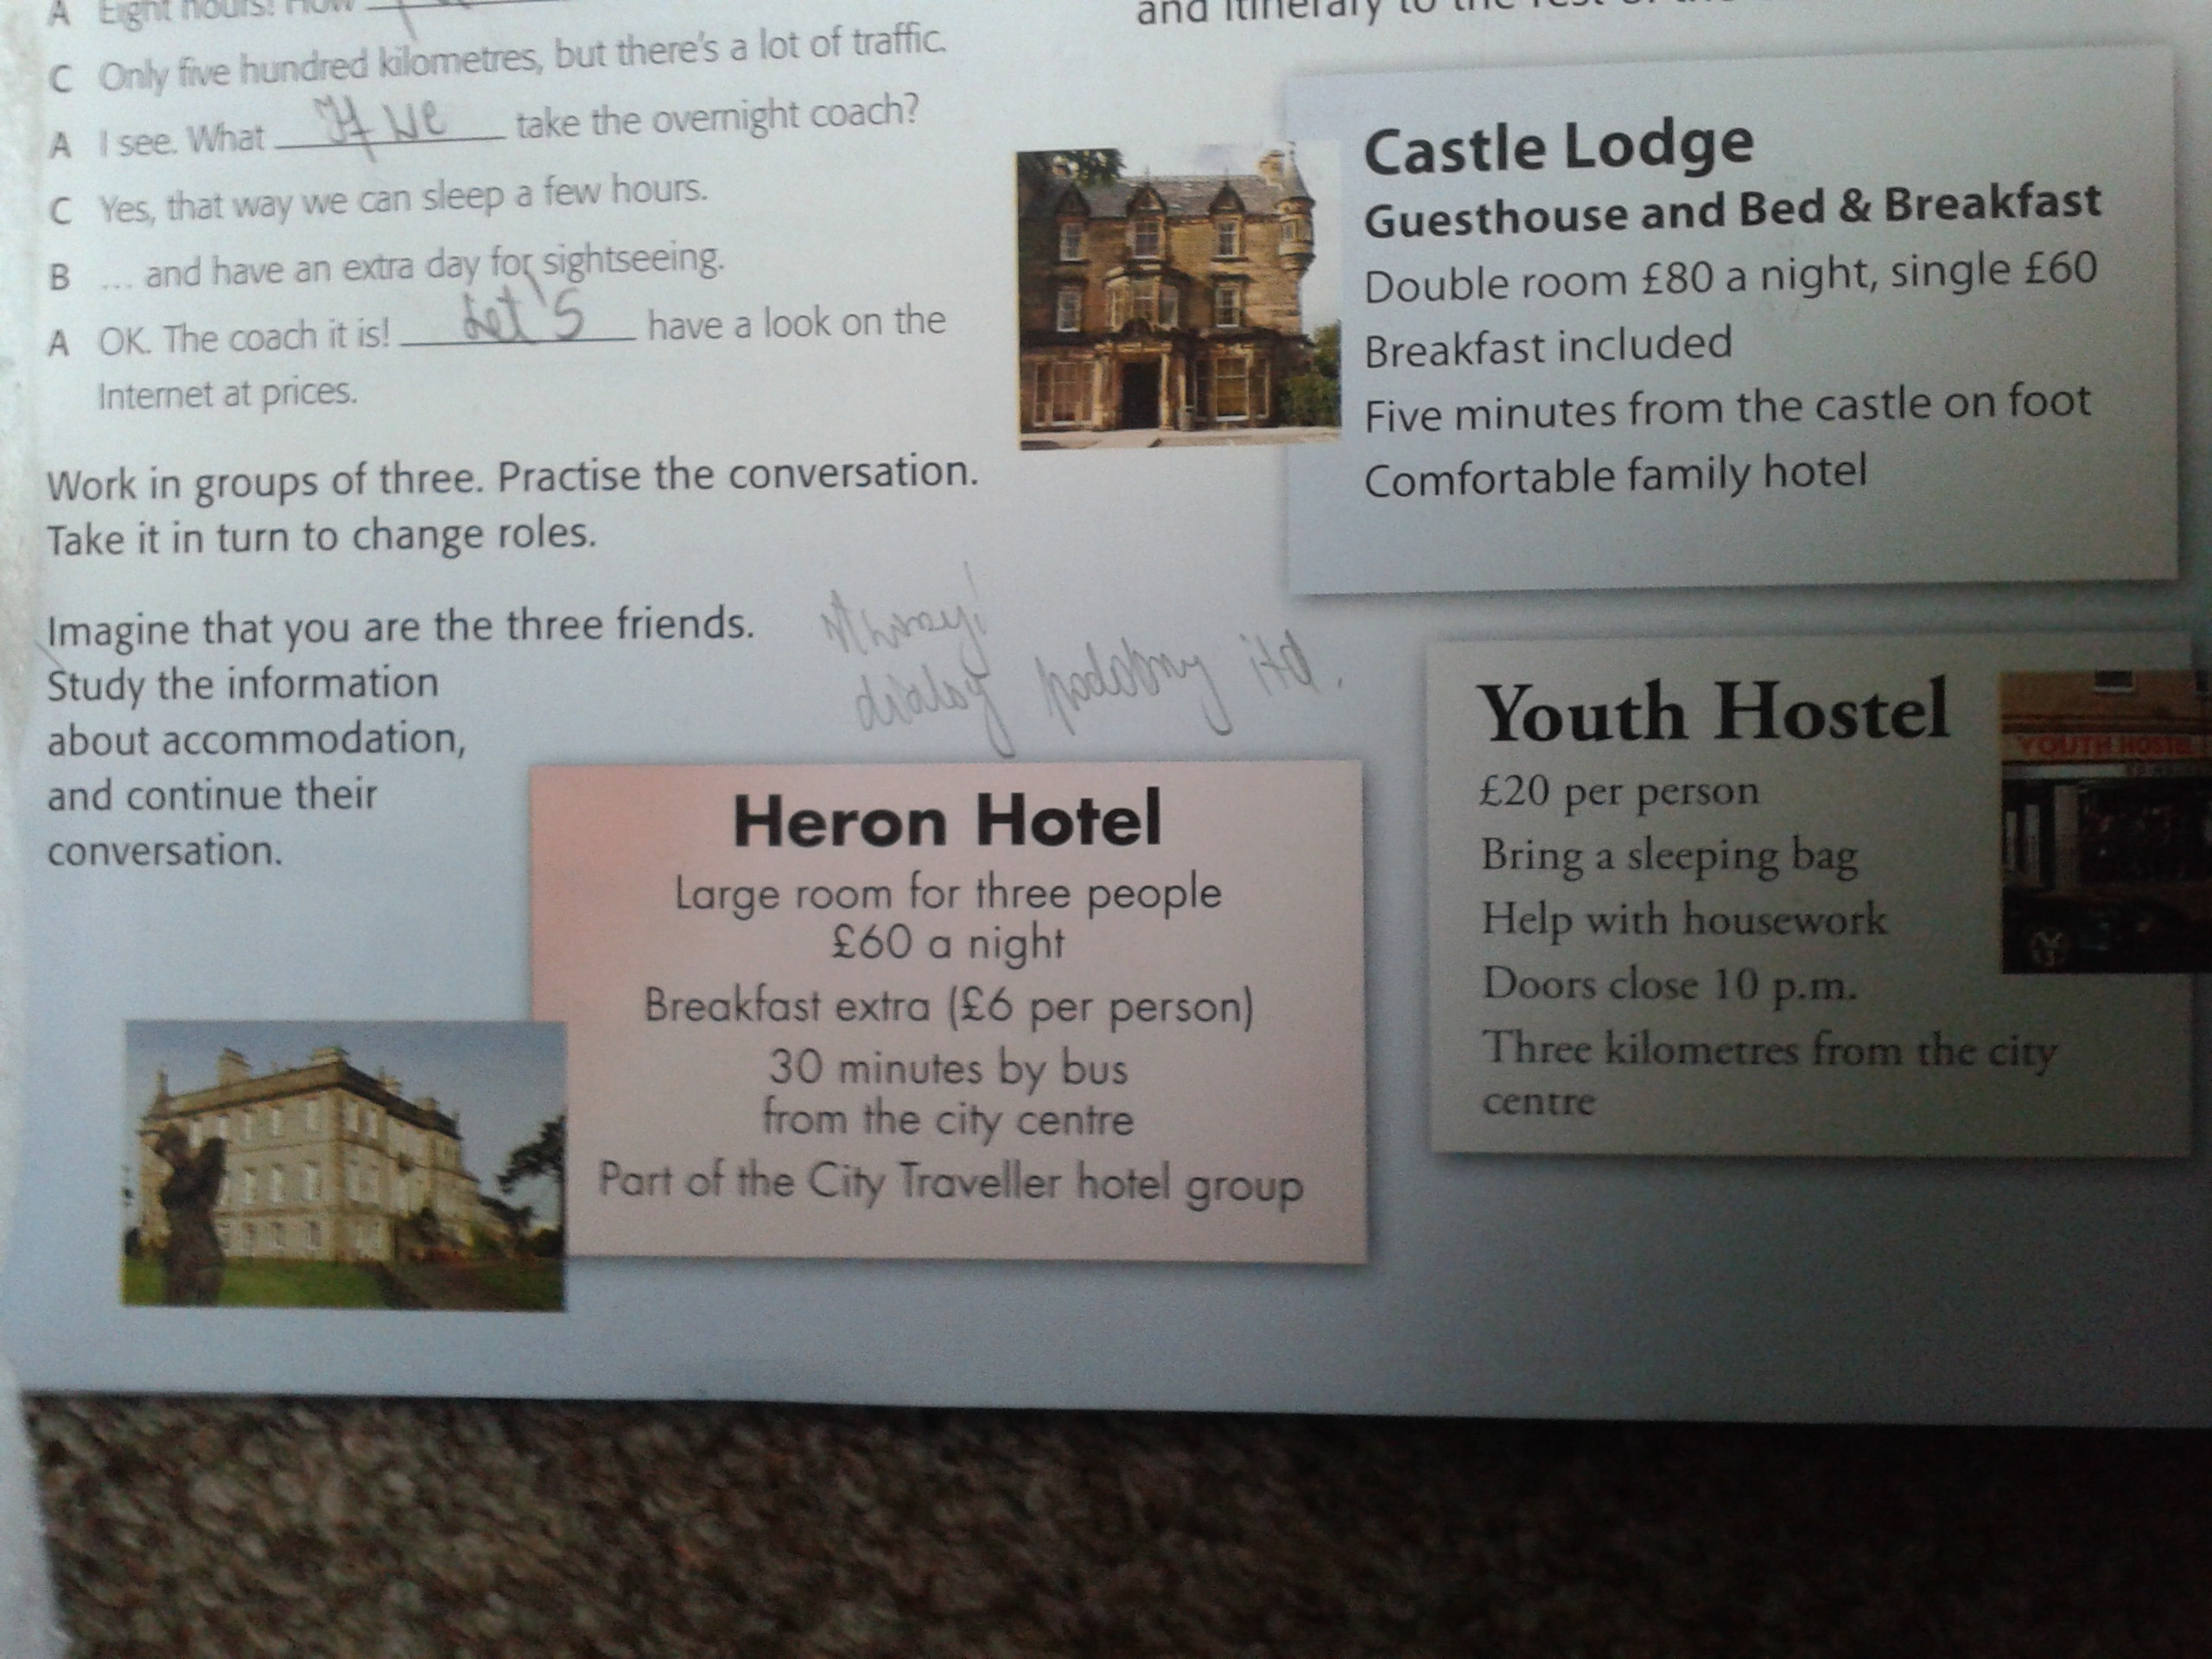 A Eight hours! How
C Only five hundred kilometres, but there's a lot of traffic.
A I see. What if we take the overnight coach?
C Yes, that way we can sleep a few hours.
B ... and have an extra day for sightseeing.
A OK. The coach it is! Let's have a look on the
Internet at prices.
Work in groups of three. Practise the conversation.
Take it in turn to change roles.
Imagine that you are the three friends.
Study the information
about accommodation,
and continue their
conversation.
dialog podobny itd.
and itinerary to the rest of the
Castle Lodge
Guesthouse and Bed & Breakfast
Double room £80 a night, single £60
Breakfast included
Five minutes from the castle on foot
Comfortable family hotel
Heron Hotel
Large room for three people
£60 a night
Breakfast extra (£6 per person)
30 minutes by bus
from the city centre
Part of the City Traveller hotel group
Youth Hostel
£20 per person
Bring a sleeping bag
Help with housework
Doors close 10 p.m.
Three kilometres from the city
centre
YOUTH HOSTEL